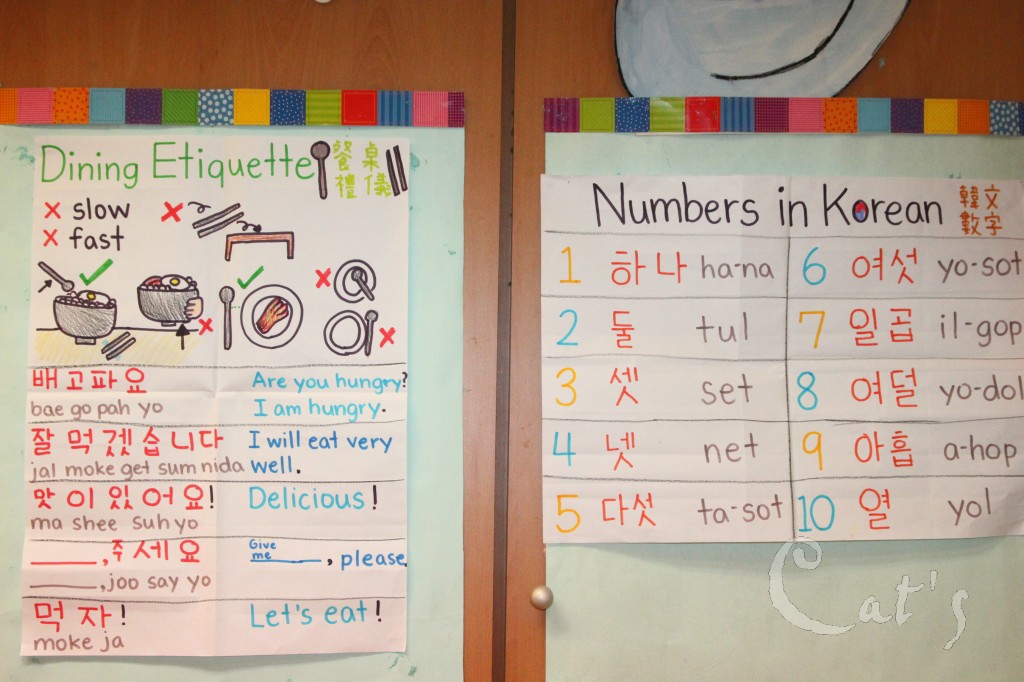 Dining Etiquette 餐桌
禮儀
slow
fast
배고파요 Are you hungry?
bae go pah yo I am hungry.
잘 먹겠습니다 I will eat very
jal moke get sum nida well.
맛이있어요! Delicious!
ma shee suh yo
______,주세요 Give me ______, please.
______,joo say yo
먹자! Let's eat!
moke ja
Numbers in Korean 韓文
數字
1 하나 ha-na 6 여섯 yo-sot
2 둘 tul 7 일곱 il-gop
3 셋 set 8 여덜 yo-dol
4 넷 net 9 아흡 a-hop
5 다섯 ta-sot 10 열 yol
Cat's